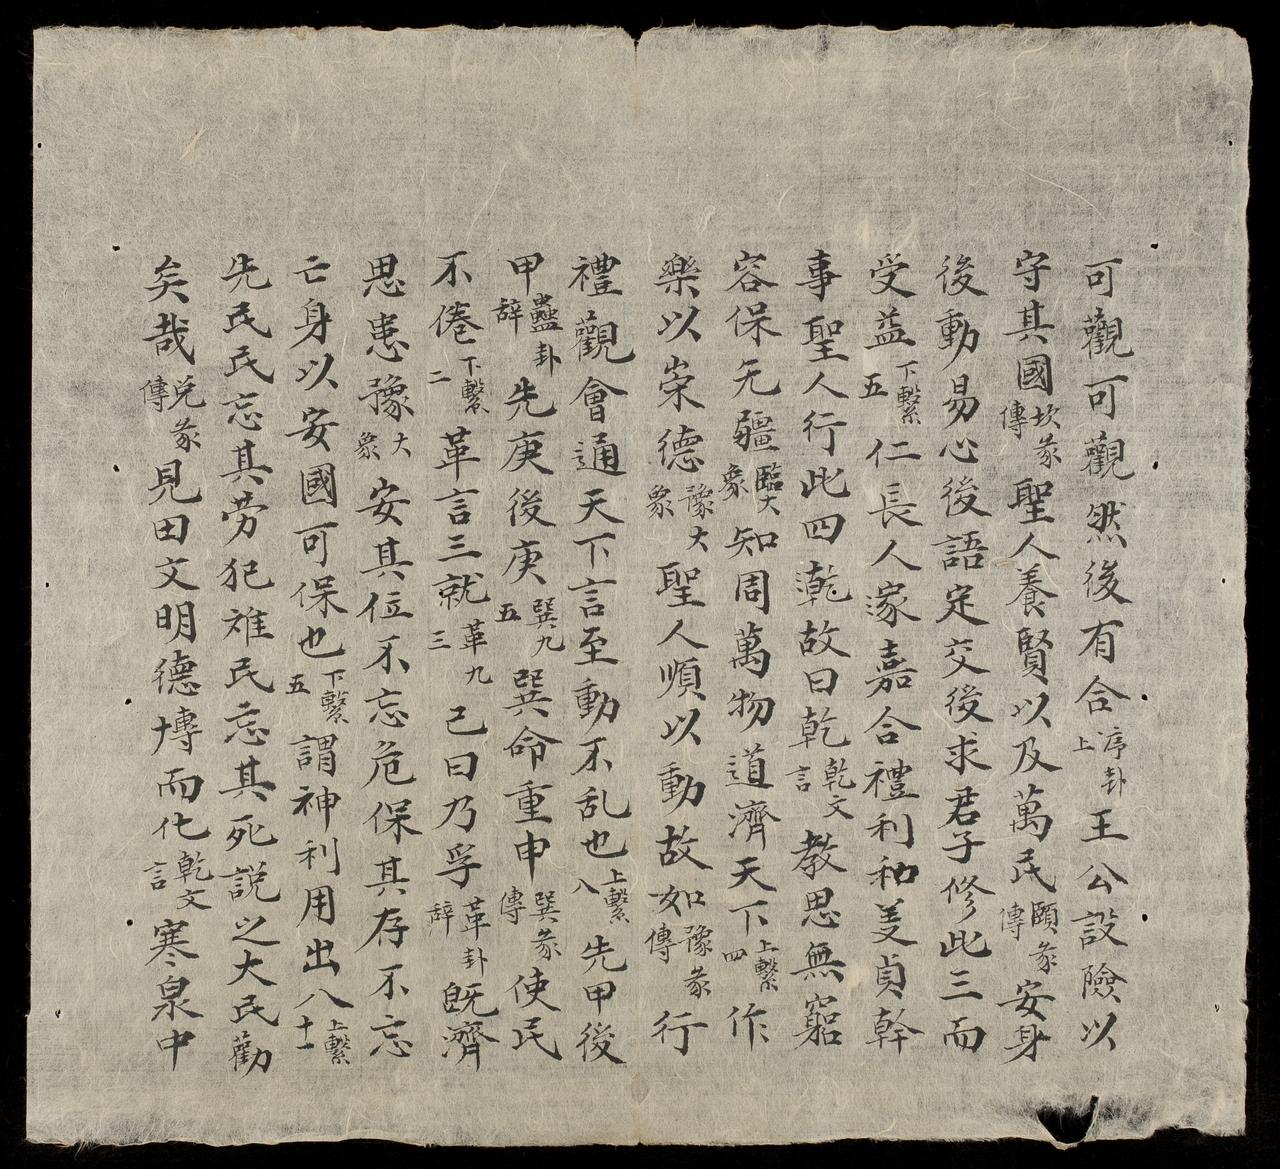 可觀可觀然後有合序卦上王公設險以
守其國坎彖傳聖人養賢以及萬民頤彖傳安身
後動易心後語定交後求君子修此三而
受益下繫五仁長人家嘉合禮利和羙貞幹
事聖人行此四漧故曰乾乾文言教思無竆
容保无疆臨大象知周萬物道濟天下上繫四作
樂以崇德豫大象聖人順以動故如豫彖傳行
禮觀會通天下言至動不乱也上繫八先甲後
甲蠱卦辭先庚後庚巽九五巽命重申巽彖傳使民
不倦下繫二革言三就革九三己曰乃孚革卦辭旣濟
思患豫大象安其位不忘危保其存不忘
亡身以安國可保也下繫五謂神利用出八上繫十一
先民民忘其劳犯難民忘其死説之大民勸
矣哉兌彖傳見田文明德博而化乾文言寒泉中